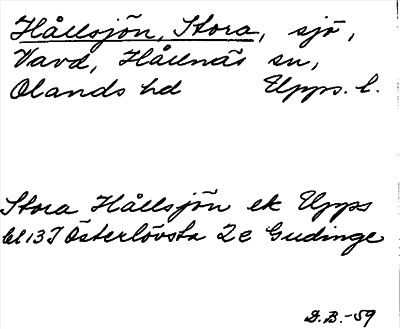 Hållsjön, Stora, sjö,
Vavd, Hållnäs sn,
Olands hd Upps. l.
Stora Hållsjön ek Upps
bl 13 I Österlövsta 2e Gudinge
D.B.-59